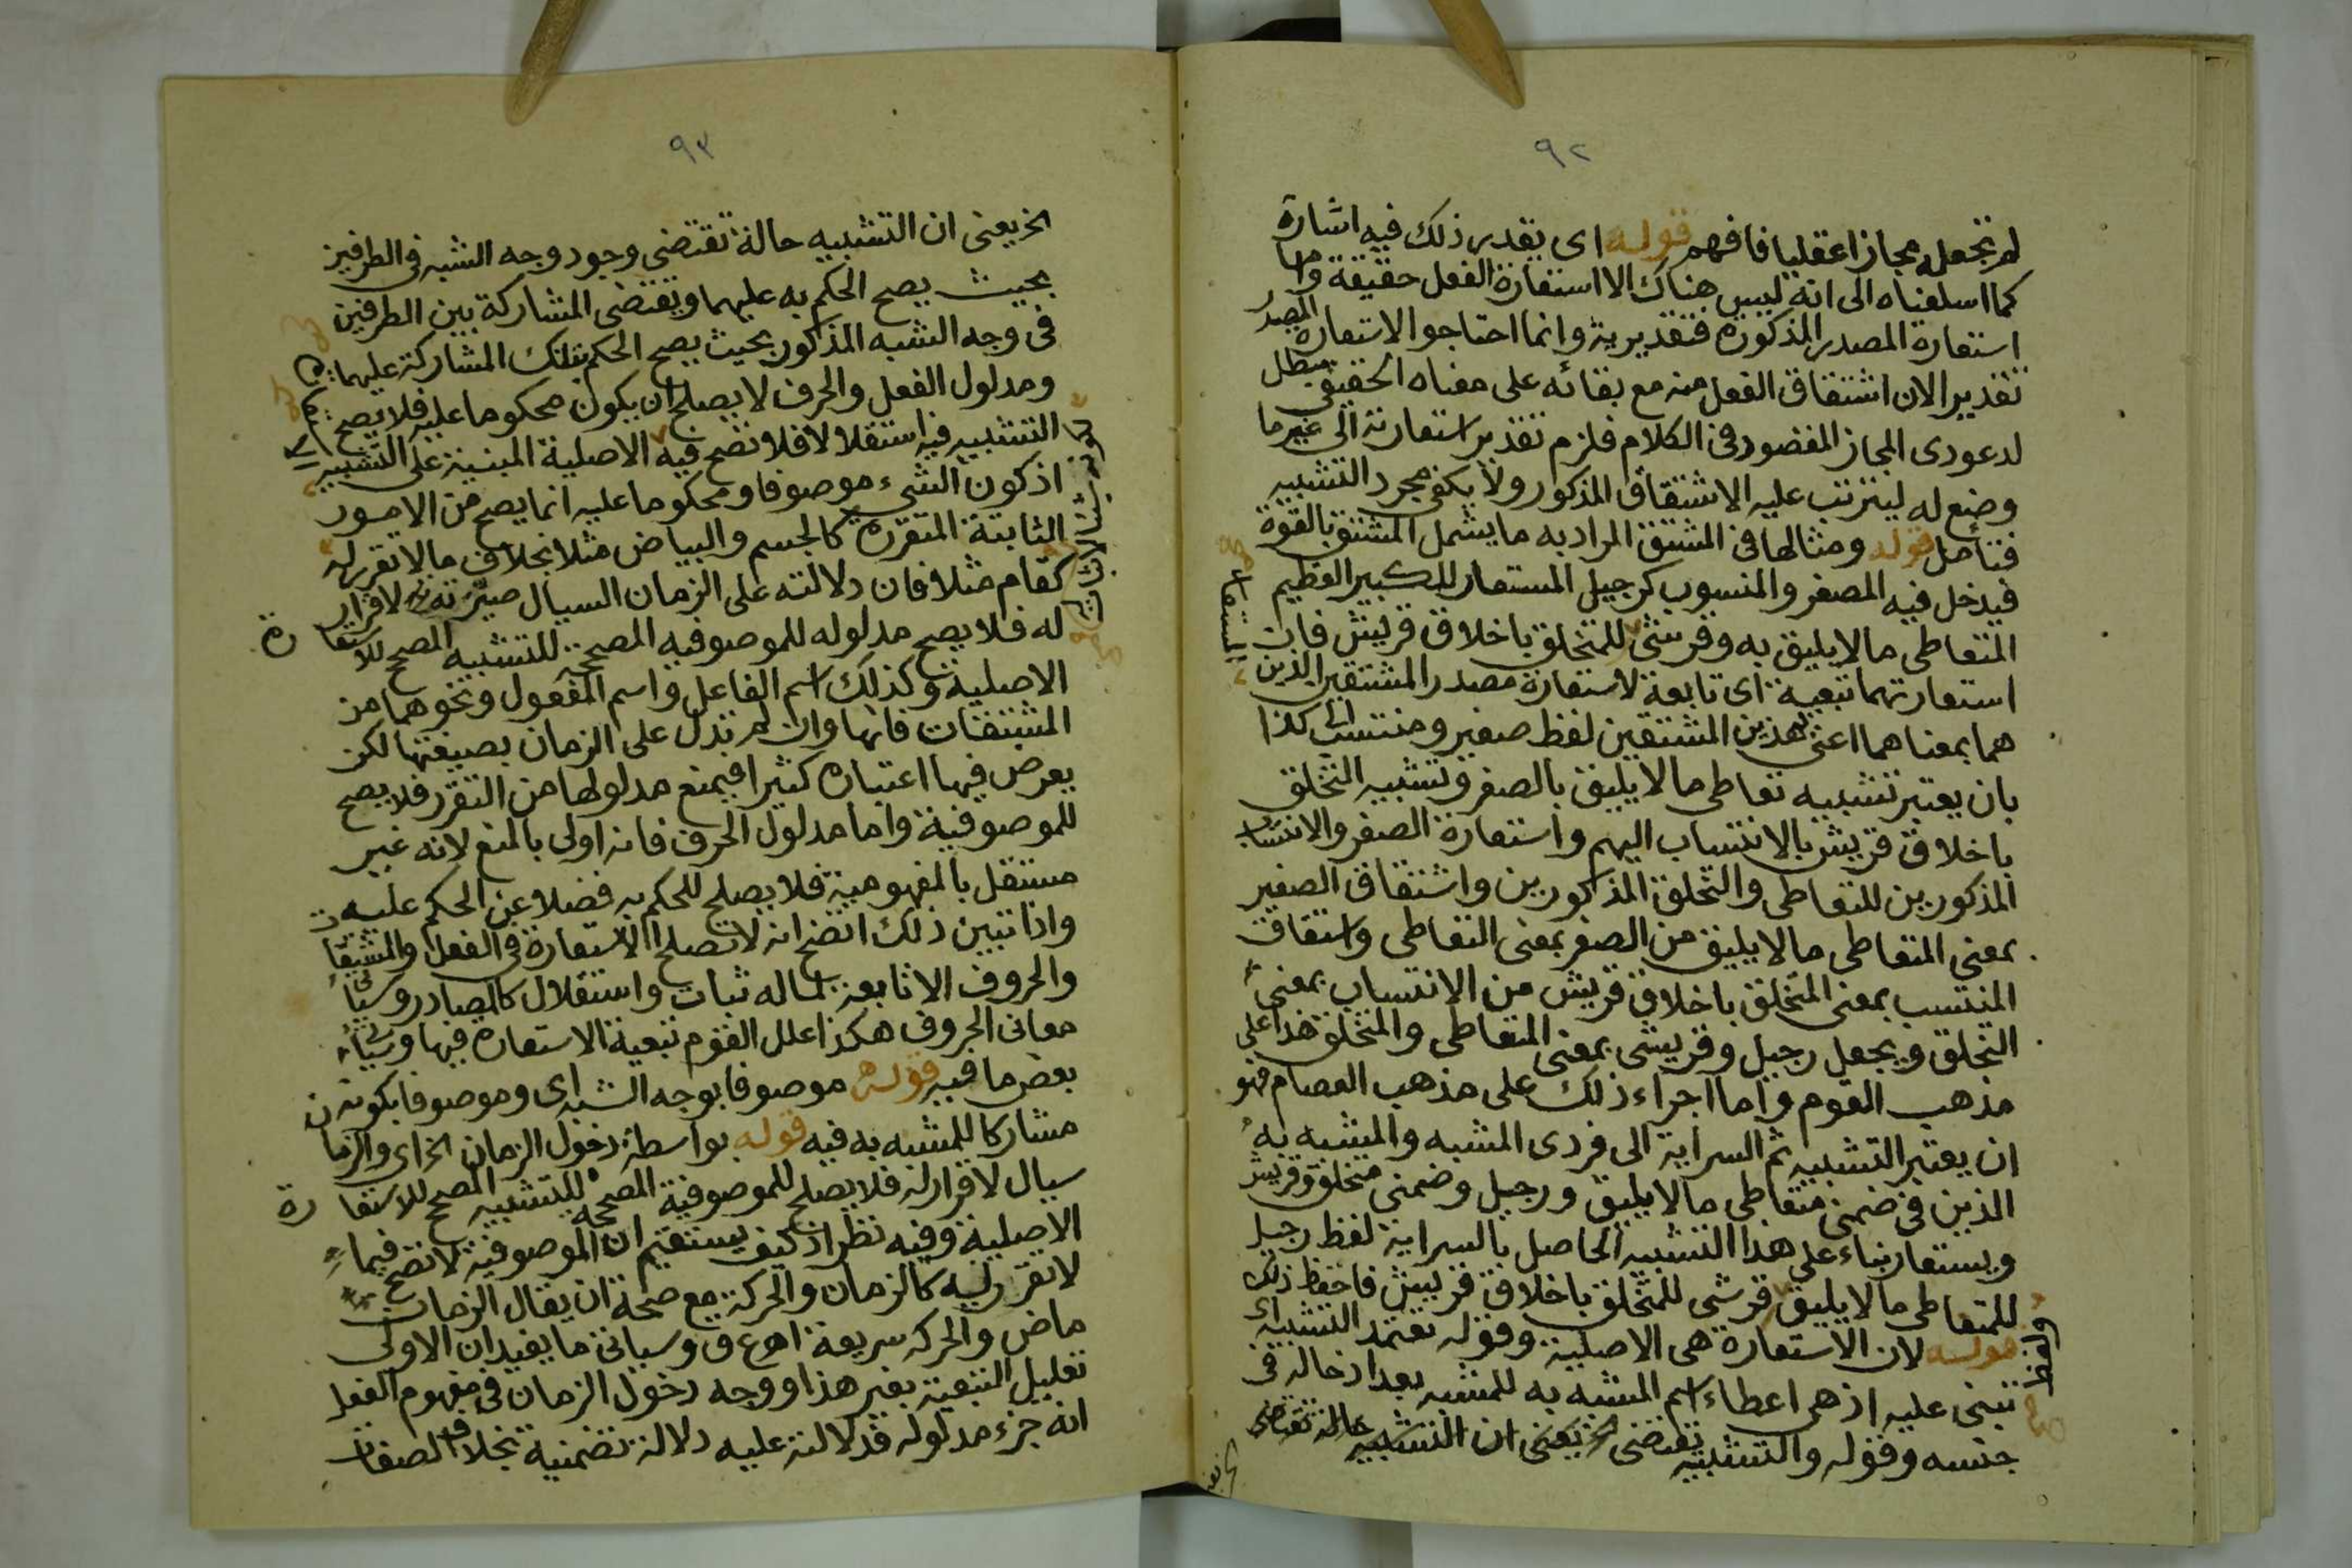 ٩٢
لم نجعله مجازا عقليا فافهم قوله اى بقدر ذلك فيه اشارة
كما اسلفناه الى انه ليس هناك الا استعارة الفعل حقيقة واما
استعارة المصدر المذكورة فتقديرية وانما احتاجوا لاستعارة المصدر
تقديرا لان اشتقاق الفعل منه مع بقائه على معناه الحقيقى مبطل
لدعوى المجاز المقصود فى الكلام فلزم تقدير استعارته الى غير ما
وضع له ليترتب عليه الاشتقاق المذكور ولا يكفى مجرد التشبيه
فتأمل قوله ومثالها فى المشتق المراد به ما يشمل المشتق بالقوة
فيدخل فيه المصغر والمنسوب كرجيل المستعار للكبير العظيم
المتعاطى ما لا يليق به وقرشى للمتخلق باخلاق قريش فان
استعارتهما تبعية اى تابعة لاستعارة مصدر المشتقين الذين
هما بمعناهما اعنى بهذين المشتقين لفظ صغير ومنتسب الى كذا
بان يعتبر تشبيه تعاطى ما لا يليق بالصغر وتشبيه التخلق
باخلاق قريش بالانتساب اليهم واستعارة الصغر والانتساب
المذكورين للتعاطى والتخلق المذكورين واشتقاق الصغير
بمعنى المتعاطى ما لا يليق من الصغر بمعنى التعاطى واشتقاق
المنتسب بمعنى المتخلق باخلاق قريش من الانتساب بمعنى
التخلق ويجعل رجيل وقريشى بمعنى المتعاطى والمتخلق هذا على
مذهب القوم واما اجراء ذلك على مذهب العصام فهو
ان يعتبر التشبيه ثم السراية الى فردى المشبه والمشبه به
الذين فى ضمنى متعاطى ما لا يليق ورجيل وضمنى متخلق وقريش
ويستعار بناء على هذا التشبيه الحاصل بالسراية لفظ رجيل
للمتعاطى ما لا يليق قرشى للمتخلق باخلاق قريش فاحفظ ذلك
ولفظ
قوله لان الاستعارة هى الاصلية وقوله تعتمد التشبيه اى
تبنى عليه اذ هى اعطاء اسم المشبه به للمشبه بعد ادخاله فى
جنسه وقوله والتشبيه يقتضى الخ يعنى ان التشبيه حالة تقتضى
٩٣
الخ يعنى ان التشبيه حالة تقتضى وجود وجه الشبه فى الطرفين
بحيث يصح الحكم به عليهما ويقتضى المشاركة بين الطرفين
فى وجه الشبه المذكور بحيث يصح الحكم بتلك المشاركة عليهما
ومدلول الفعل والحرف لا يصلح ان يكون محكوما عليه فلا يصح
التشبيه فيه استقلالا فلا تصح فيه الاصلية المبنية على التشبيه
اذ كون الشىء موصوفا ومحكوما عليه انما يصح من الامور
الثابتة المتقررة كالجسم والبياض مثلا بخلاف ما لا تقرر له
كقام مثلا فان دلالته على الزمان السيال صيرته لا قرار
له فلا يصح مدلوله للموصوفيه المصححة للتشبيه المصحح للاستعارة
الاصلية وكذلك اسم الفاعل واسم المفعول ونحوهما من
المشتقات فانها وان لم تدل على الزمان بصيغتها لكن
يعرض فيها اعتباره كثيرا فيمنع مدلولها من التقرر فلا يصح
للموصوفية واما مدلول الحرف فانه اولى بالمنع لانه غير
مستقل بالمفهومية فلا يصلح للحكم به فضلا عن الحكم عليه
واذا تبين ذلك اتضح انه لا تصلح الاستعارة فى الفعل والمشتقات
والحروف الا تابعة لما له ثبات واستقلال كالمصادر وسيأتى
معانى الحروف هكذا علل القوم تبعية الاستعارة فيها وسيأتى
بعض ما فيه قوله موصوفا بوجه الشبه اى وموصوفا بكونه
مشاركا للمشبه به فيه قوله بواسطة دخول الزمان الخ اى والزمان
سيال لا قرار له فلا يصلح للموصوفية المصححة للتشبيه المصحح للاستعارة
الاصلية وفيه نظر اذ كيف يستقيم ان الموصوفية لا تصح فيما
لا تقرر له كالزمان والحركة مع صحة ان يقال الزمان
ماض والحركة سريعة اهـ ع ق وسيأتى ما يفيد ان الاولى
تعليل التبعية بغير هذا ووجه دخول الزمان فى مفهوم الفعل
انه جزء مدلوله فدلالته عليه دلالة تضمنية بخلاف الصفات